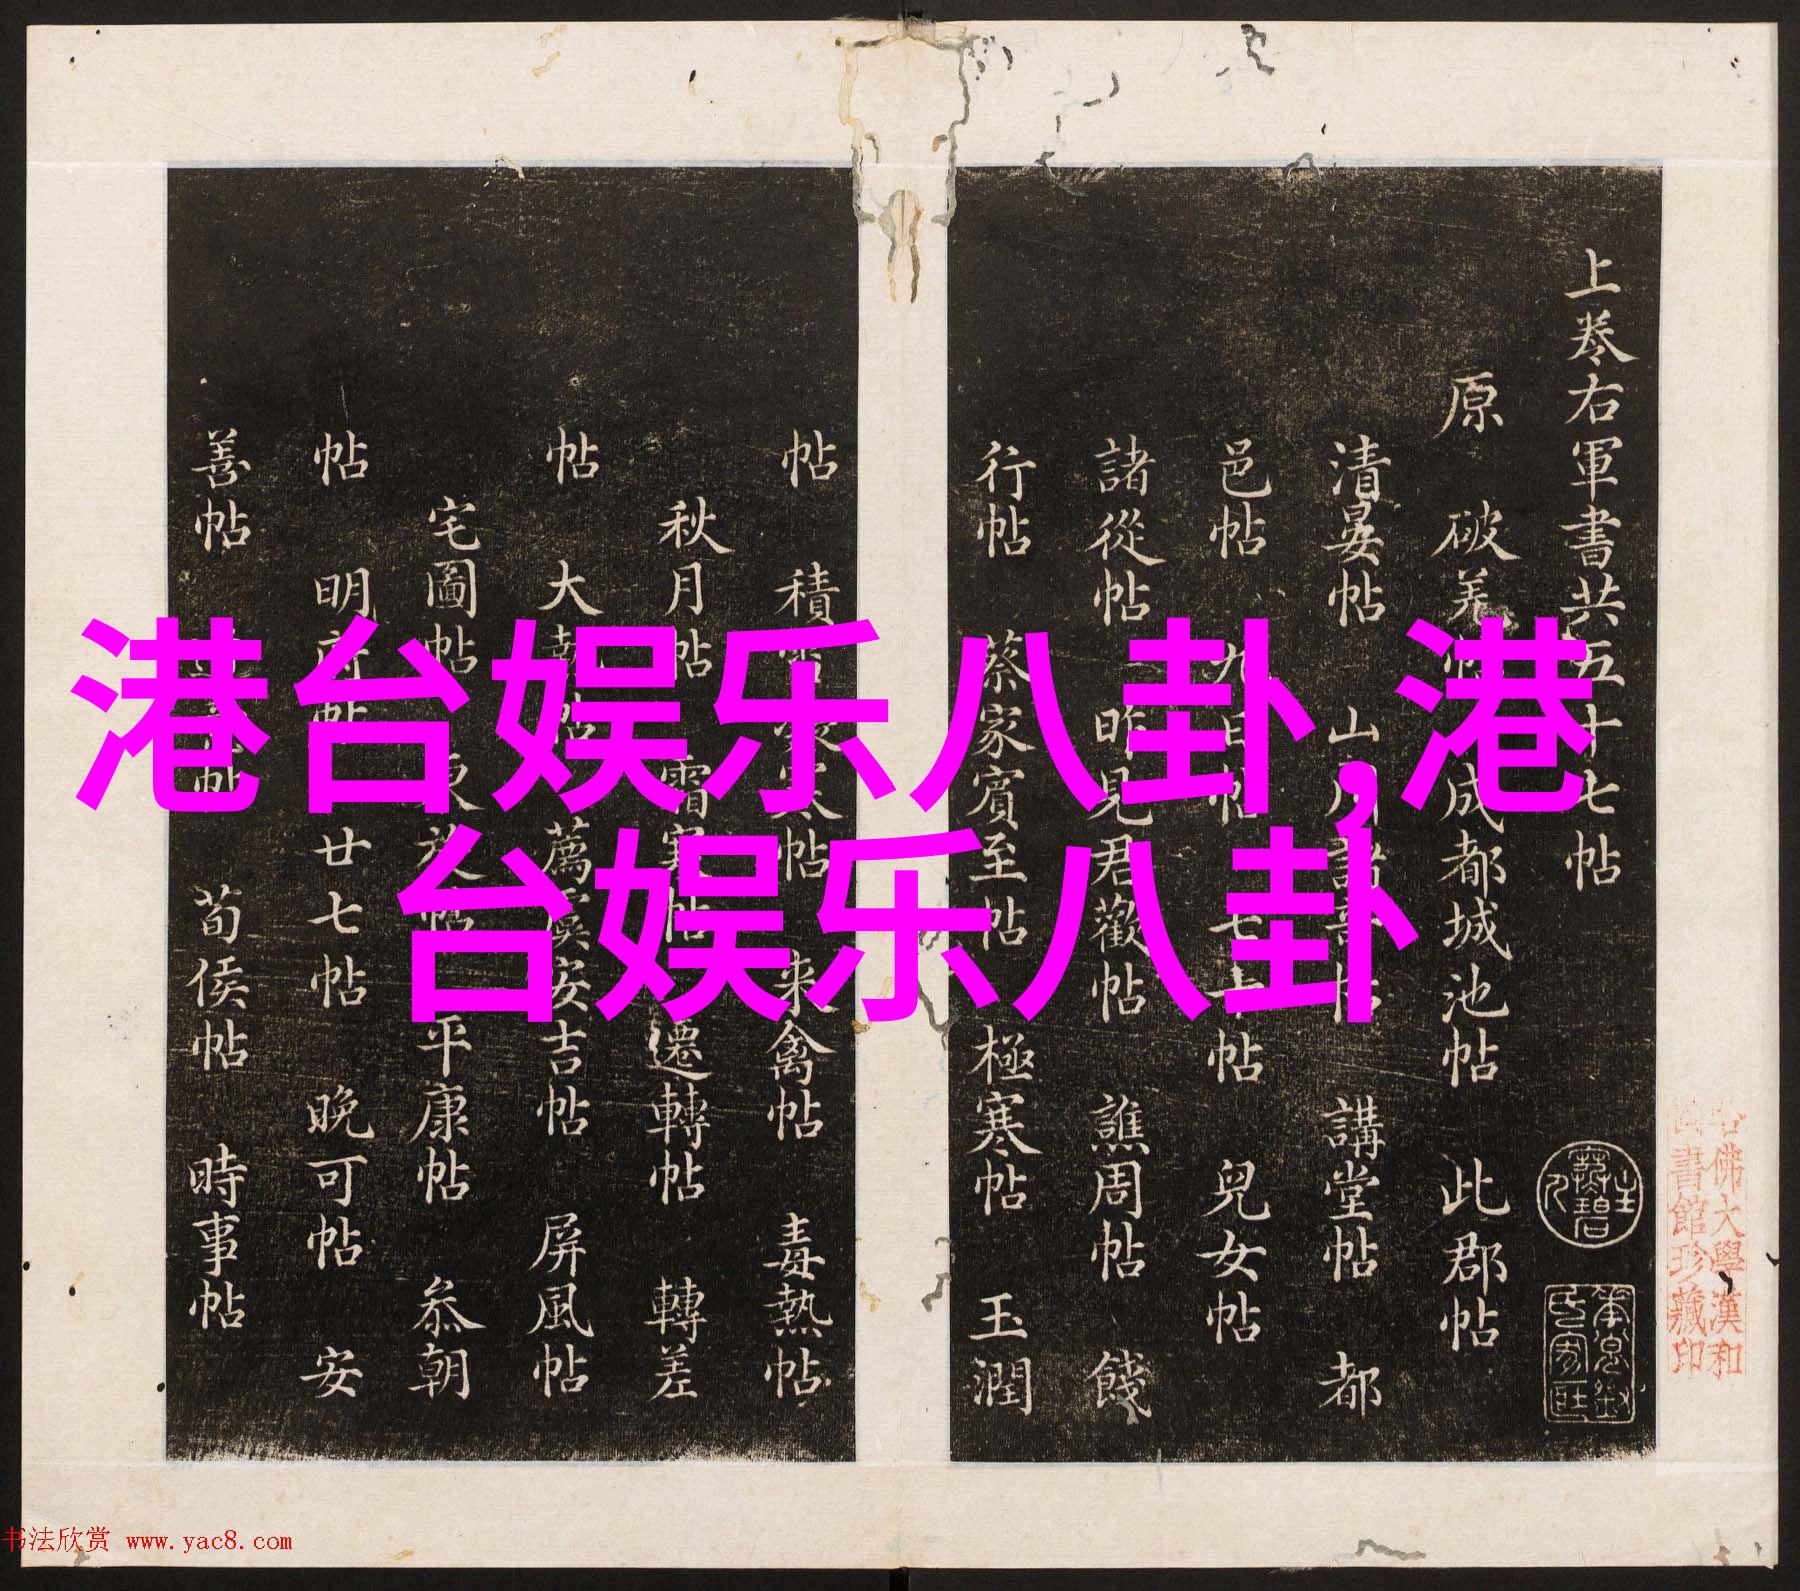 港台娱乐八卦,港
台娱乐八卦
上卷右軍書共五十七帖
原 破羌帖 成都城池帖 此郡帖
清晏帖 山川諸奇帖 講堂帖 都
邑帖 九日帖 七十帖 兒女帖
諸從帖 昨見君歡帖 譙周帖 餞
行帖 蔡家賓至帖 極寒帖 玉潤
帖 積雪凝寒帖 來禽帖 毒熱帖
秋月帖 霜寒帖 遷轉帖 轉差
帖 大 帖 薦 安吉帖 屏風帖
宅圖帖 帖 平康帖 叅朝
帖 明府帖 廿七帖 晚可帖 安
善帖 帖 荀侯帖 時事帖
佛大學漢和
書館珍藏印
书法欣赏 www.yac8.com